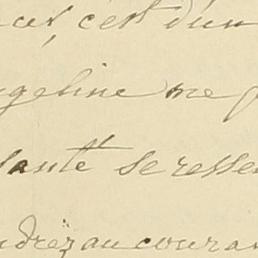 c'est d'un
geline me
santé se resse
drez au couran